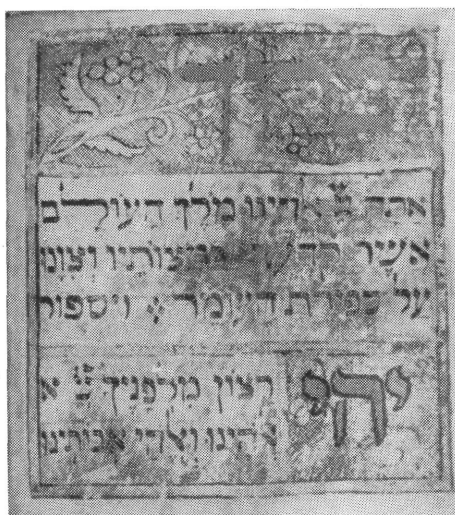 אתה יי אלהינו מלך העולם
אשר במצותיו וצונו
על ספירת העומר ויספור
יהי רצון מלפניך יי א
אלהינו ואלהי אבותינו